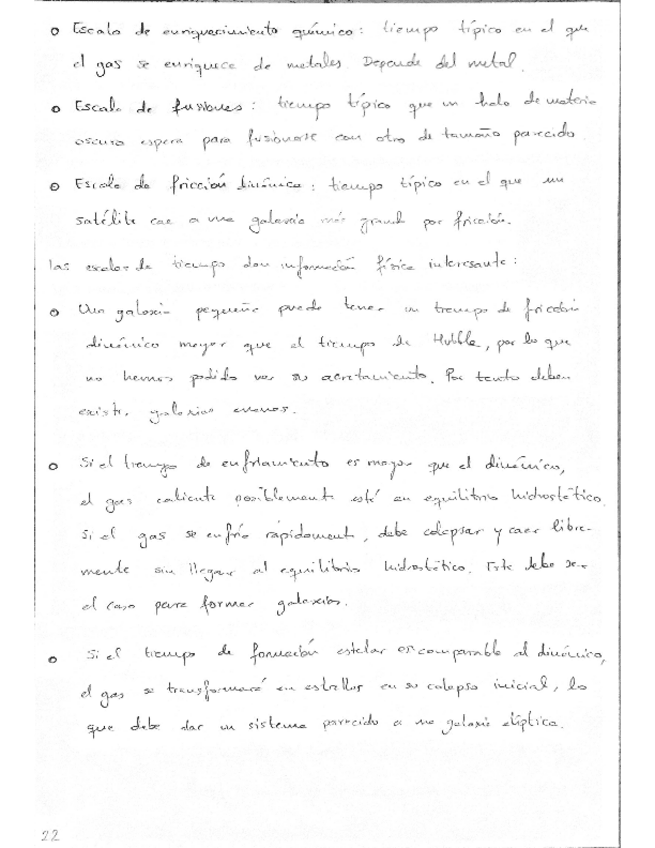 o Escala de enriquecimiento químico: tiempo típico en el que
el gas se enriquece de metales. Depende del metal.
o Escala de fusiones: tiempo típico que un halo de materia
oscura espera para fusionarse con otro de tamaño parecido.
o Escala de fricción dinámica: tiempo típico en el que un
satélite cae a una galaxia más grande por fricción.
Las escalas de tiempo dan información física interesante:
o Una galaxia pequeña puede tener un tiempo de fricción
dinámico mayor que el tiempo de Hubble, por lo que
no hemos podido ver su acretamiento. Por tanto deben
existir galaxias enanas.
o Si el tiempo de enfriamiento es mayor que el dinámico,
el gas caliente posiblemente esté en equilibrio hidrostático.
Si el gas se enfría rápidamente, debe colapsar y caer libre-
mente sin llegar al equilibrio hidrostático. Este debe ser
el caso para formar galaxias.
o Si el tiempo de formación estelar es comparable al dinámico,
el gas se transformará en estrellas en su colapso inicial, lo
que debe dar un sistema parecido a una galaxia elíptica.
22